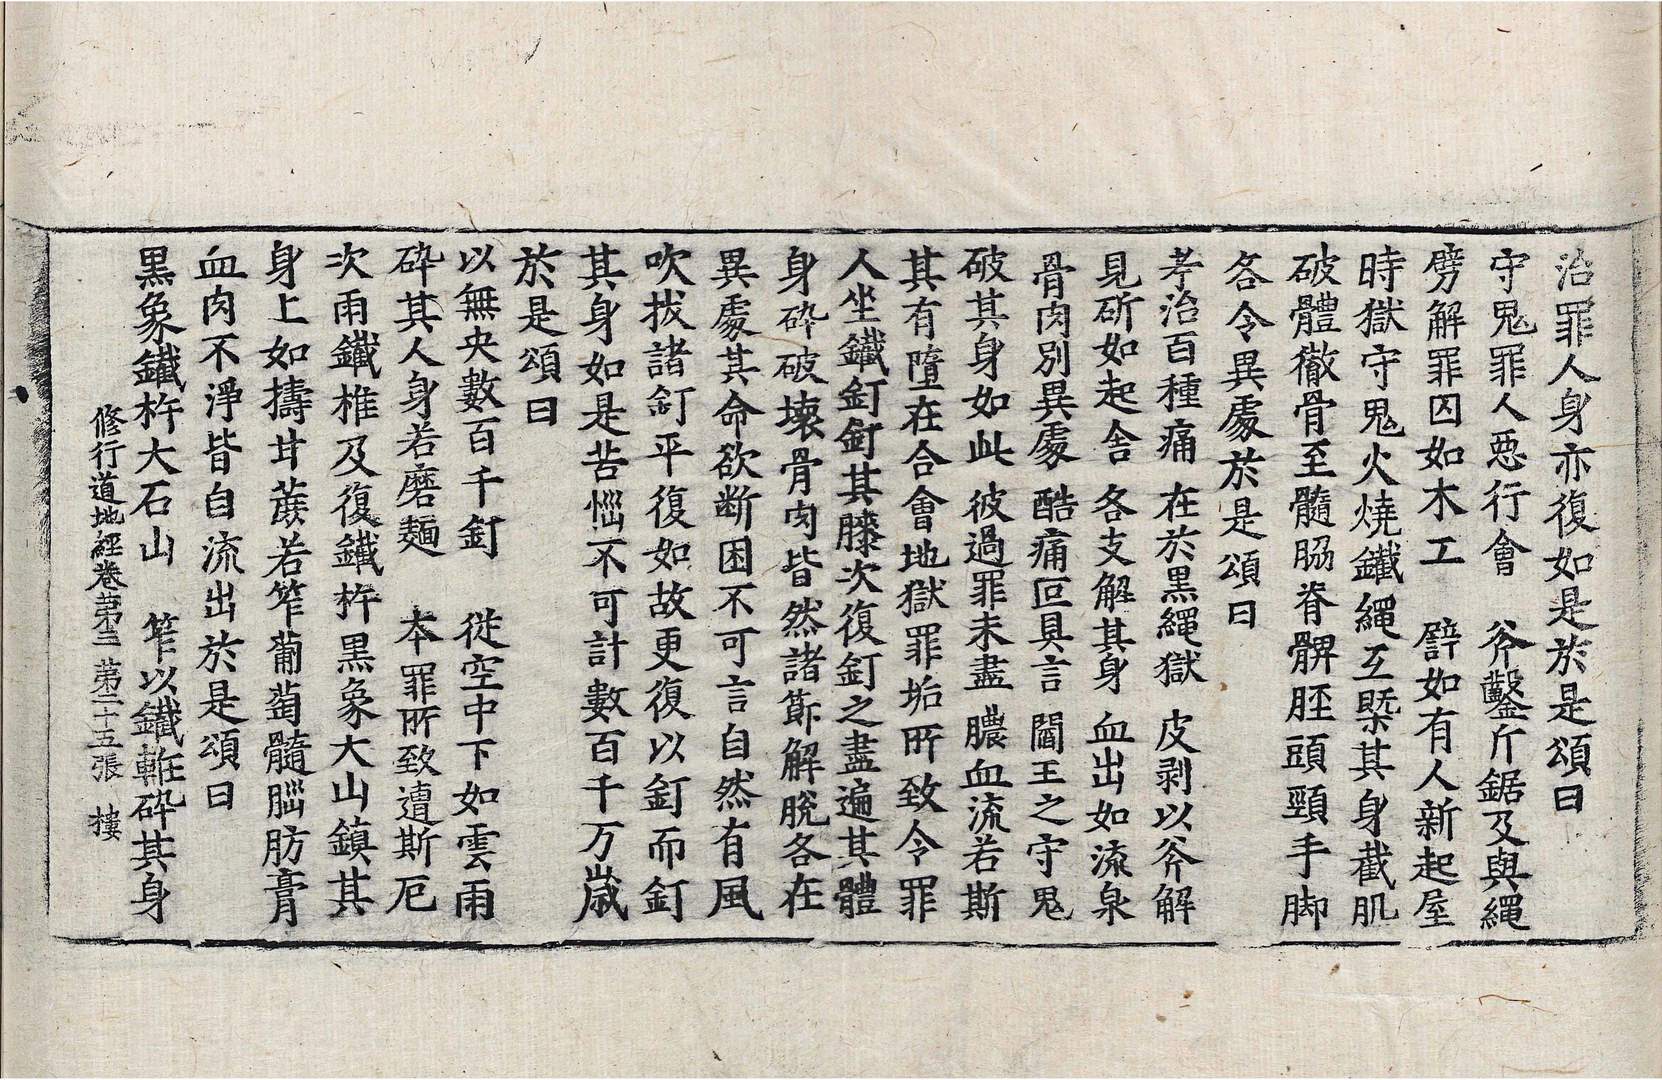 治罪人身亦復如是於是頌曰
守鬼罪人惡行會　斧鑿斤鋸及與繩
劈解罪囚如木工　譬如有人新起屋
時獄守鬼火燒鐵繩互槩其身截肌
破體徹骨至髓脇脊髀脛頭頸手脚
各令異處於是頌曰
考治百種痛　在於黑繩獄　皮剥以斧解
見斫如起舍　各支解其身　血出如流泉
骨肉別異處　酷痛叵具言　閻王之守鬼
破其身如此　彼過罪未盡　膿血流若斯
其有墮在合會地獄罪垢所致令罪
人坐鐵釘釘其膝次復釘之盡遍其體
身碎破壞骨肉皆然諸節解脫各在
異處其命欲斷困不可言自然有風
吹拔諸釘平復如故更復以釘而釘
其身如是苦惱不可計數百千万歲
於是頌曰
以無央數百千釘　從空中下如雲雨
碎其人身若磨麵　本罪所致遭斯厄
次雨鐵椎及復鐵杵黑象大山鎮其
身上如擣甘蔗若笮蒲萄髓腦肪膏
血肉不淨皆自流出於是頌曰
黑象鐵杵大石山　笮以鐵輞碎其身
修行道地經卷第三　第二十五張　樓